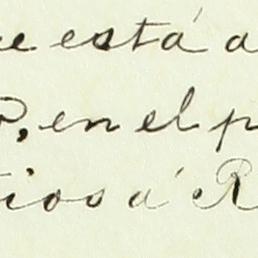 e está a
P, en el p
tiosá R